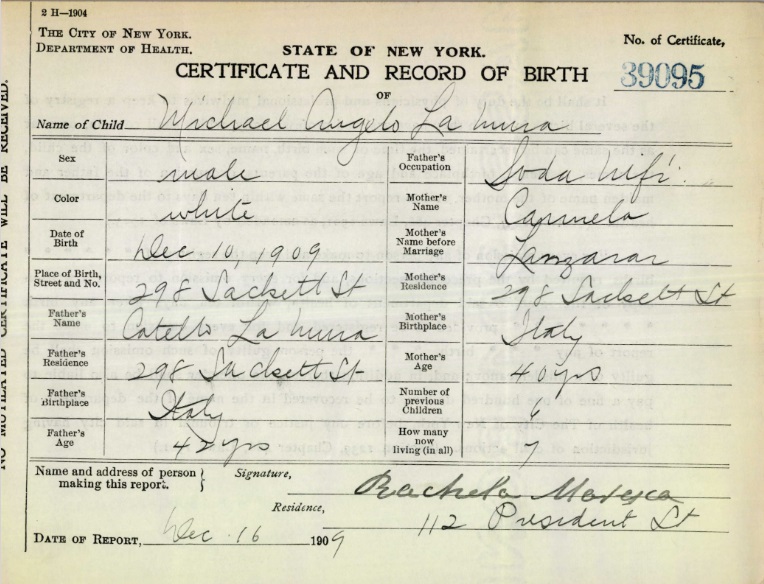 2 H—1904
THE CITY OF NEW YORK.
DEPARTMENT OF HEALTH.
STATE OF NEW YORK.
No. of Certificate,
CERTIFICATE AND RECORD OF BIRTH
39095
OF
Name of Child Michael Angelo La Mura
Sex male
Father's Occupation Soda Mfr.
Color white
Mother's Name Carmela
Date of Birth Dec 10, 1909
Mother's Name before Marriage
Place of Birth, Street and No. 298 Sackett St
Mother's Residence 298 Sackett St
Father's Name Catello La Mura
Mother's Birthplace Italy
Father's Residence 298 Sackett St
Mother's Age 40 yrs
Father's Birthplace Italy
Number of previous Children
Father's Age 42 yrs
How many now living (in all) 7
Name and address of person making this report.
Signature, Rachela Maresca
Residence, 112 President St
DATE OF REPORT, Dec. 16 1909
NO MUTILATED CERTIFICATE WILL BE RECEIVED.